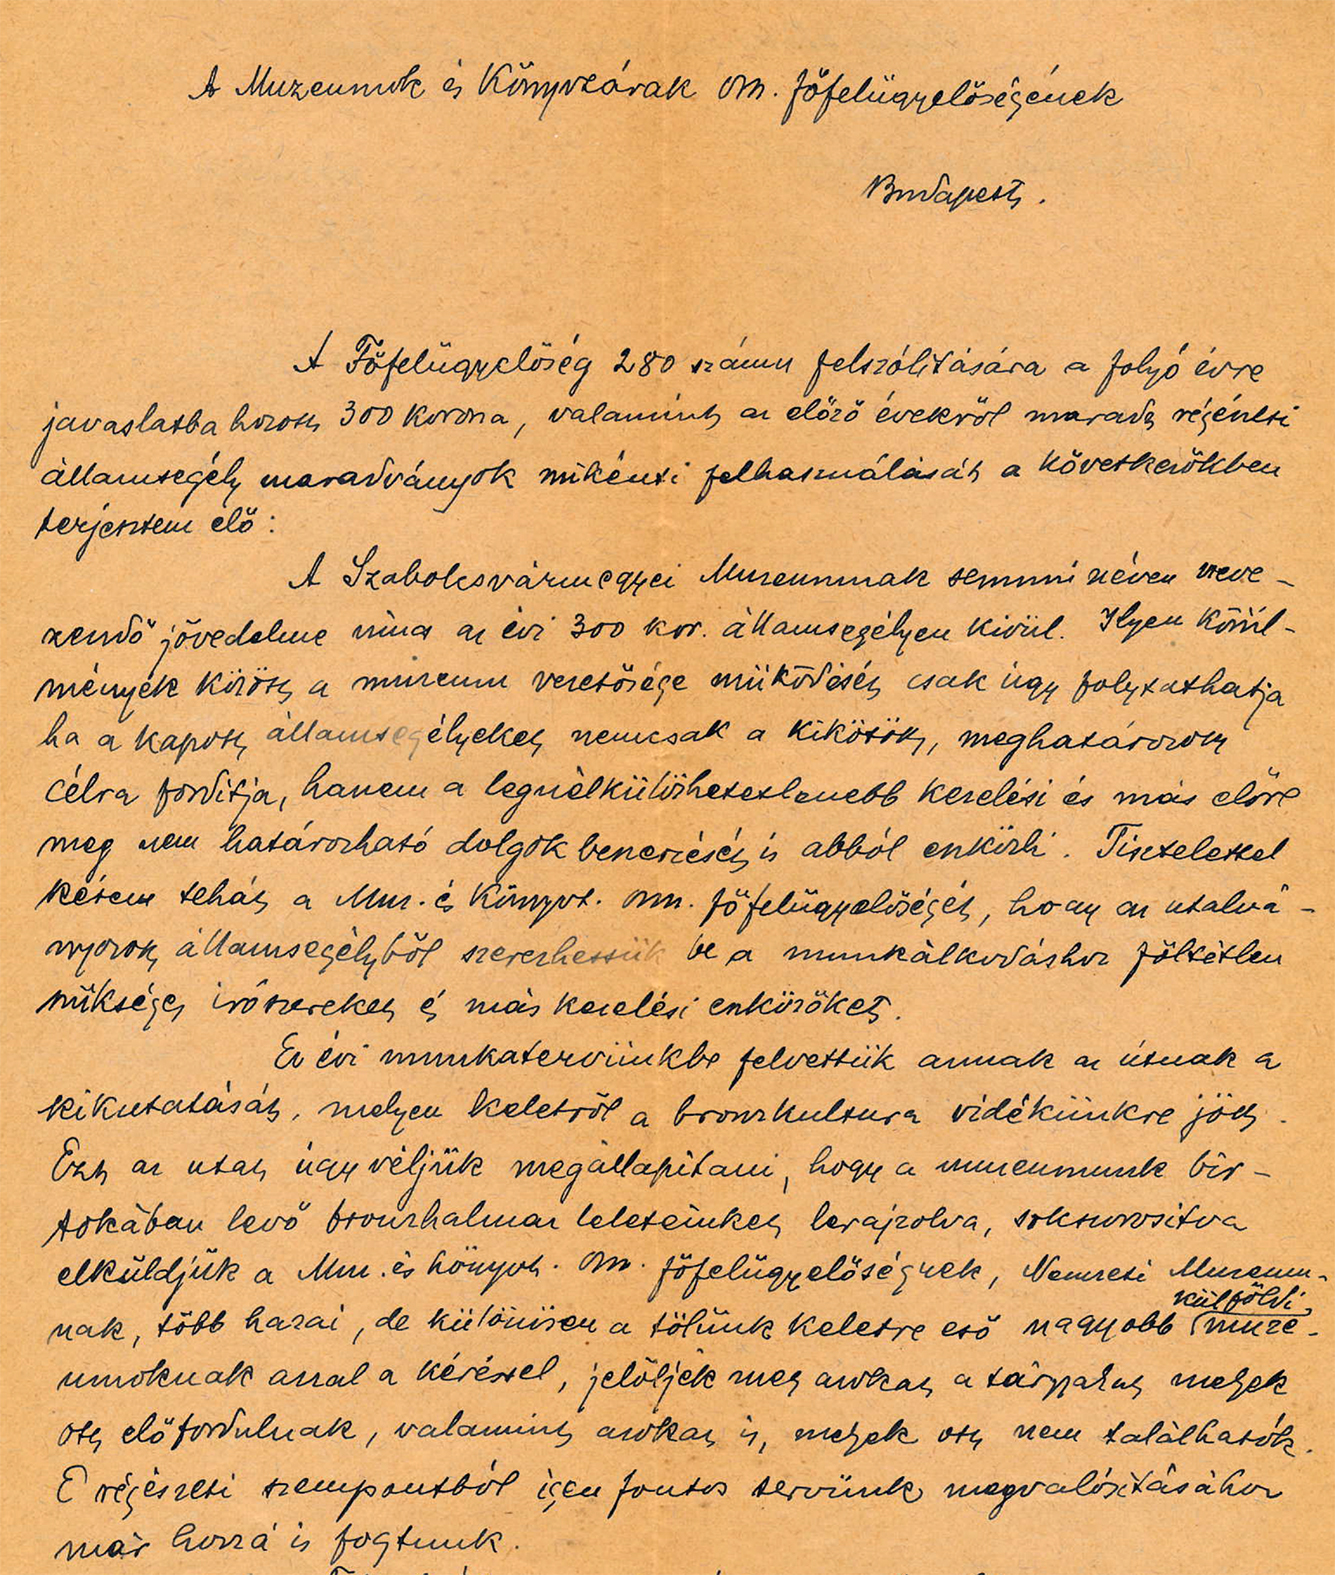 A Muzeumok és Könyvtárak Orsz. főfelügyelőségének
Budapest.
A Főfelügyelőség 280 számu felszólitására a folyó évre
javaslatba hozott 300 korona, valamint az előző évekről maradt régészeti
államsegély maradványok mikénti felhasználását a következőkben
terjesztem elő:
A Szabolcsvármegyei Muzeumnak semmi néven neve-
zendő jövedelme nincs az évi 300 kor. államsegélyen kivül. Ilyen körül-
mények között a muzeum vezetősége müködését csak úgy folytathatja
ha a kapott államsegélyeket nemcsak a kikötött, meghatározott
célra forditja, hanem a legnélkülözhetetlenebb kezelési és más előre
meg nem határozható dolgok beszerzését is abból eszközli. Tisztelettel
kérem tehát a Muz. és Könyvt. Orsz. főfelügyelőségét, hogy az utalvá-
nyozott államsegélyből szerezhessük be a munkálkodáshoz föltétlen
szükséges irószereket és más kezelési eszközöket.
Ez évi munkatervünkbe felvettük annak az útnak a
kikutatását, melyen keletről a bronzkultura vidékünkre jött.
Ezt az utat úgy véljük megállapitani, hogy a muzeumunk bir-
tokában levő bronzhalmaz leleteinket lerajzolva, sokszorositva
elküldjük a Muz. és könyvt. Orsz. főfelügyelőségnek, Nemzeti Muzeum-
nak, több hazai, de különösen a tőlünk keletre eső nagyobb külföldi muze-
umoknak azzal a kéréssel, jelöljék meg azokat a tárgyakat melyek
ott előfordulnak, valamint azokat is, melyek ott nem találhatók.
E régészeti szempontból igen fontos tervünk megvalósitásához
már hozzá is fogtunk.